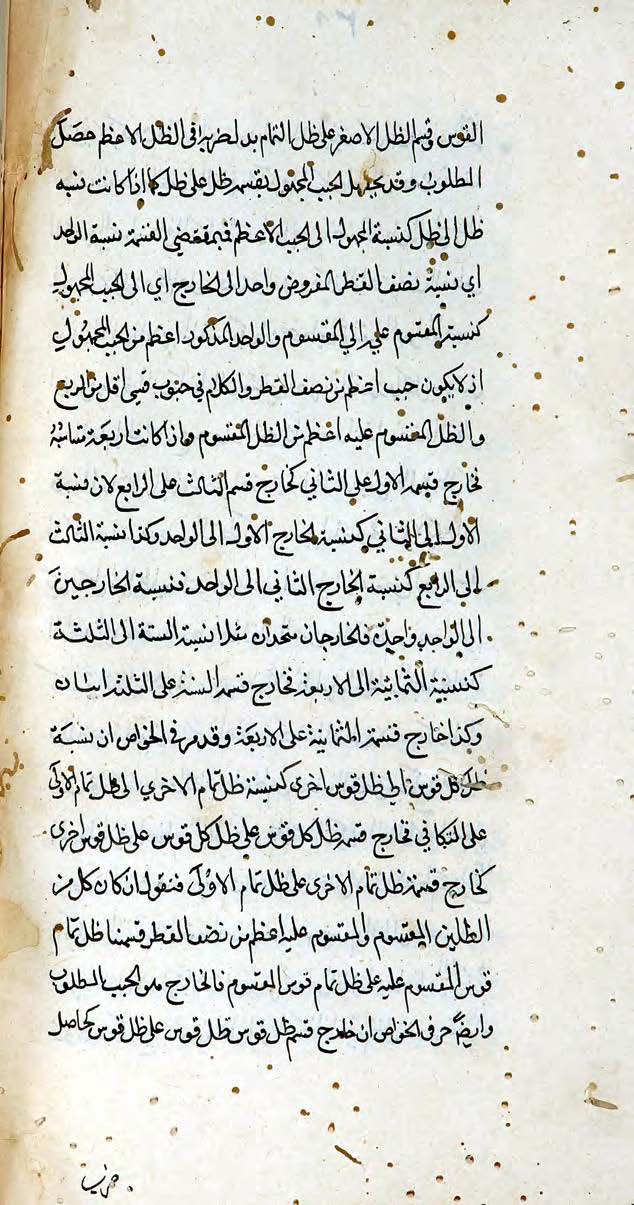 القوس وقسم الظل الاصغر على ظل التمام بدل ضربه في الظل الاعظم حصل
المطلوب وقد يحصل الجيب المجهول بقسمة ظل على ظل كما اذا كانت نسبة
ظل الى ظل كنسبة المجهول الى الجيب الاعظم فبمقتضى القسمة نسبة الواحد
اي نسبة نصف القطر المفروض واحد الى الخارج اي الى الجيب المجهول
كنسبة المقسوم عليه الي المقسوم والواحد المذكور اعظم من الجيب المجهول
اذ لا يكون جيب اعظم من نصف القطر والكلام في جنوب قسي اقل من الربع
والظل المقسوم عليه اعظم من الظل المقسوم واذا كانت اربعة متناسبة
فخارج قسمة الاول على الثاني كخارج قسم الثالث على الرابع لان نسبة
الاول الى الثاني كنسبة الخارج الاول الى الواحد وكذا نسبة الثالث
الى الرابع كنسبة الخارج الثاني الى الواحد فنسبة الخارجين
الى الواحد واحدة فالخارجان متحدان مثلا نسبة الستة الى الثلثة
كنسبة الثمانية الى الاربعة فخارج قسمة الستة على الثلثة اثنان
وكذا خارج قسمة الثمانية على الاربعة وقد مر في الخواص ان نسبة
ظل كل قوس الى ظل قوس اخرى كنسبة ظل تمام الاخري الى ظل تمام الاولى
على التكافي فخارج قسمة ظل كل قوس على ظل كل قوس على ظل قوس اخرى
كخارج قسمة ظل تمام الاخرى على ظل تمام الاولى فنقول ان كان كل من
الظلين المقسوم والمقسوم عليه اعظم من نصف القطر قسمنا ظل تمام
قوس المقسوم عليه على ظل تمام قوس المقسوم فالخارج هو الجيب المطلوب
وايضا مر في الخواص ان خارج قسم ظل قوس ظل قوس على ظل قوس كحاصل
ضرب